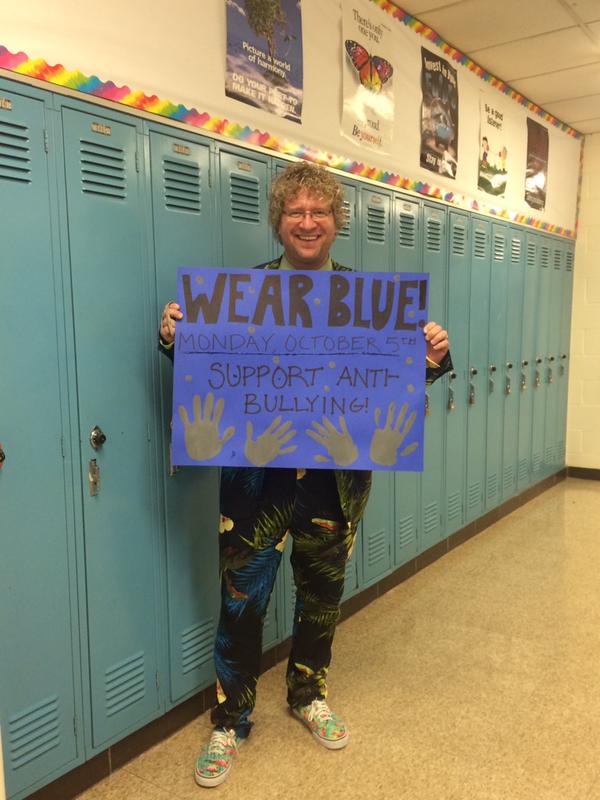 Picture a world
of harmony.
DO YOUR PART TO
MAKE IT
There's only
one you.
Be yourself.
Invest in
Be a good
listener!
WEAR BLUE!
MONDAY, OCTOBER 5TH
SUPPORT ANTI-
BULLYING!